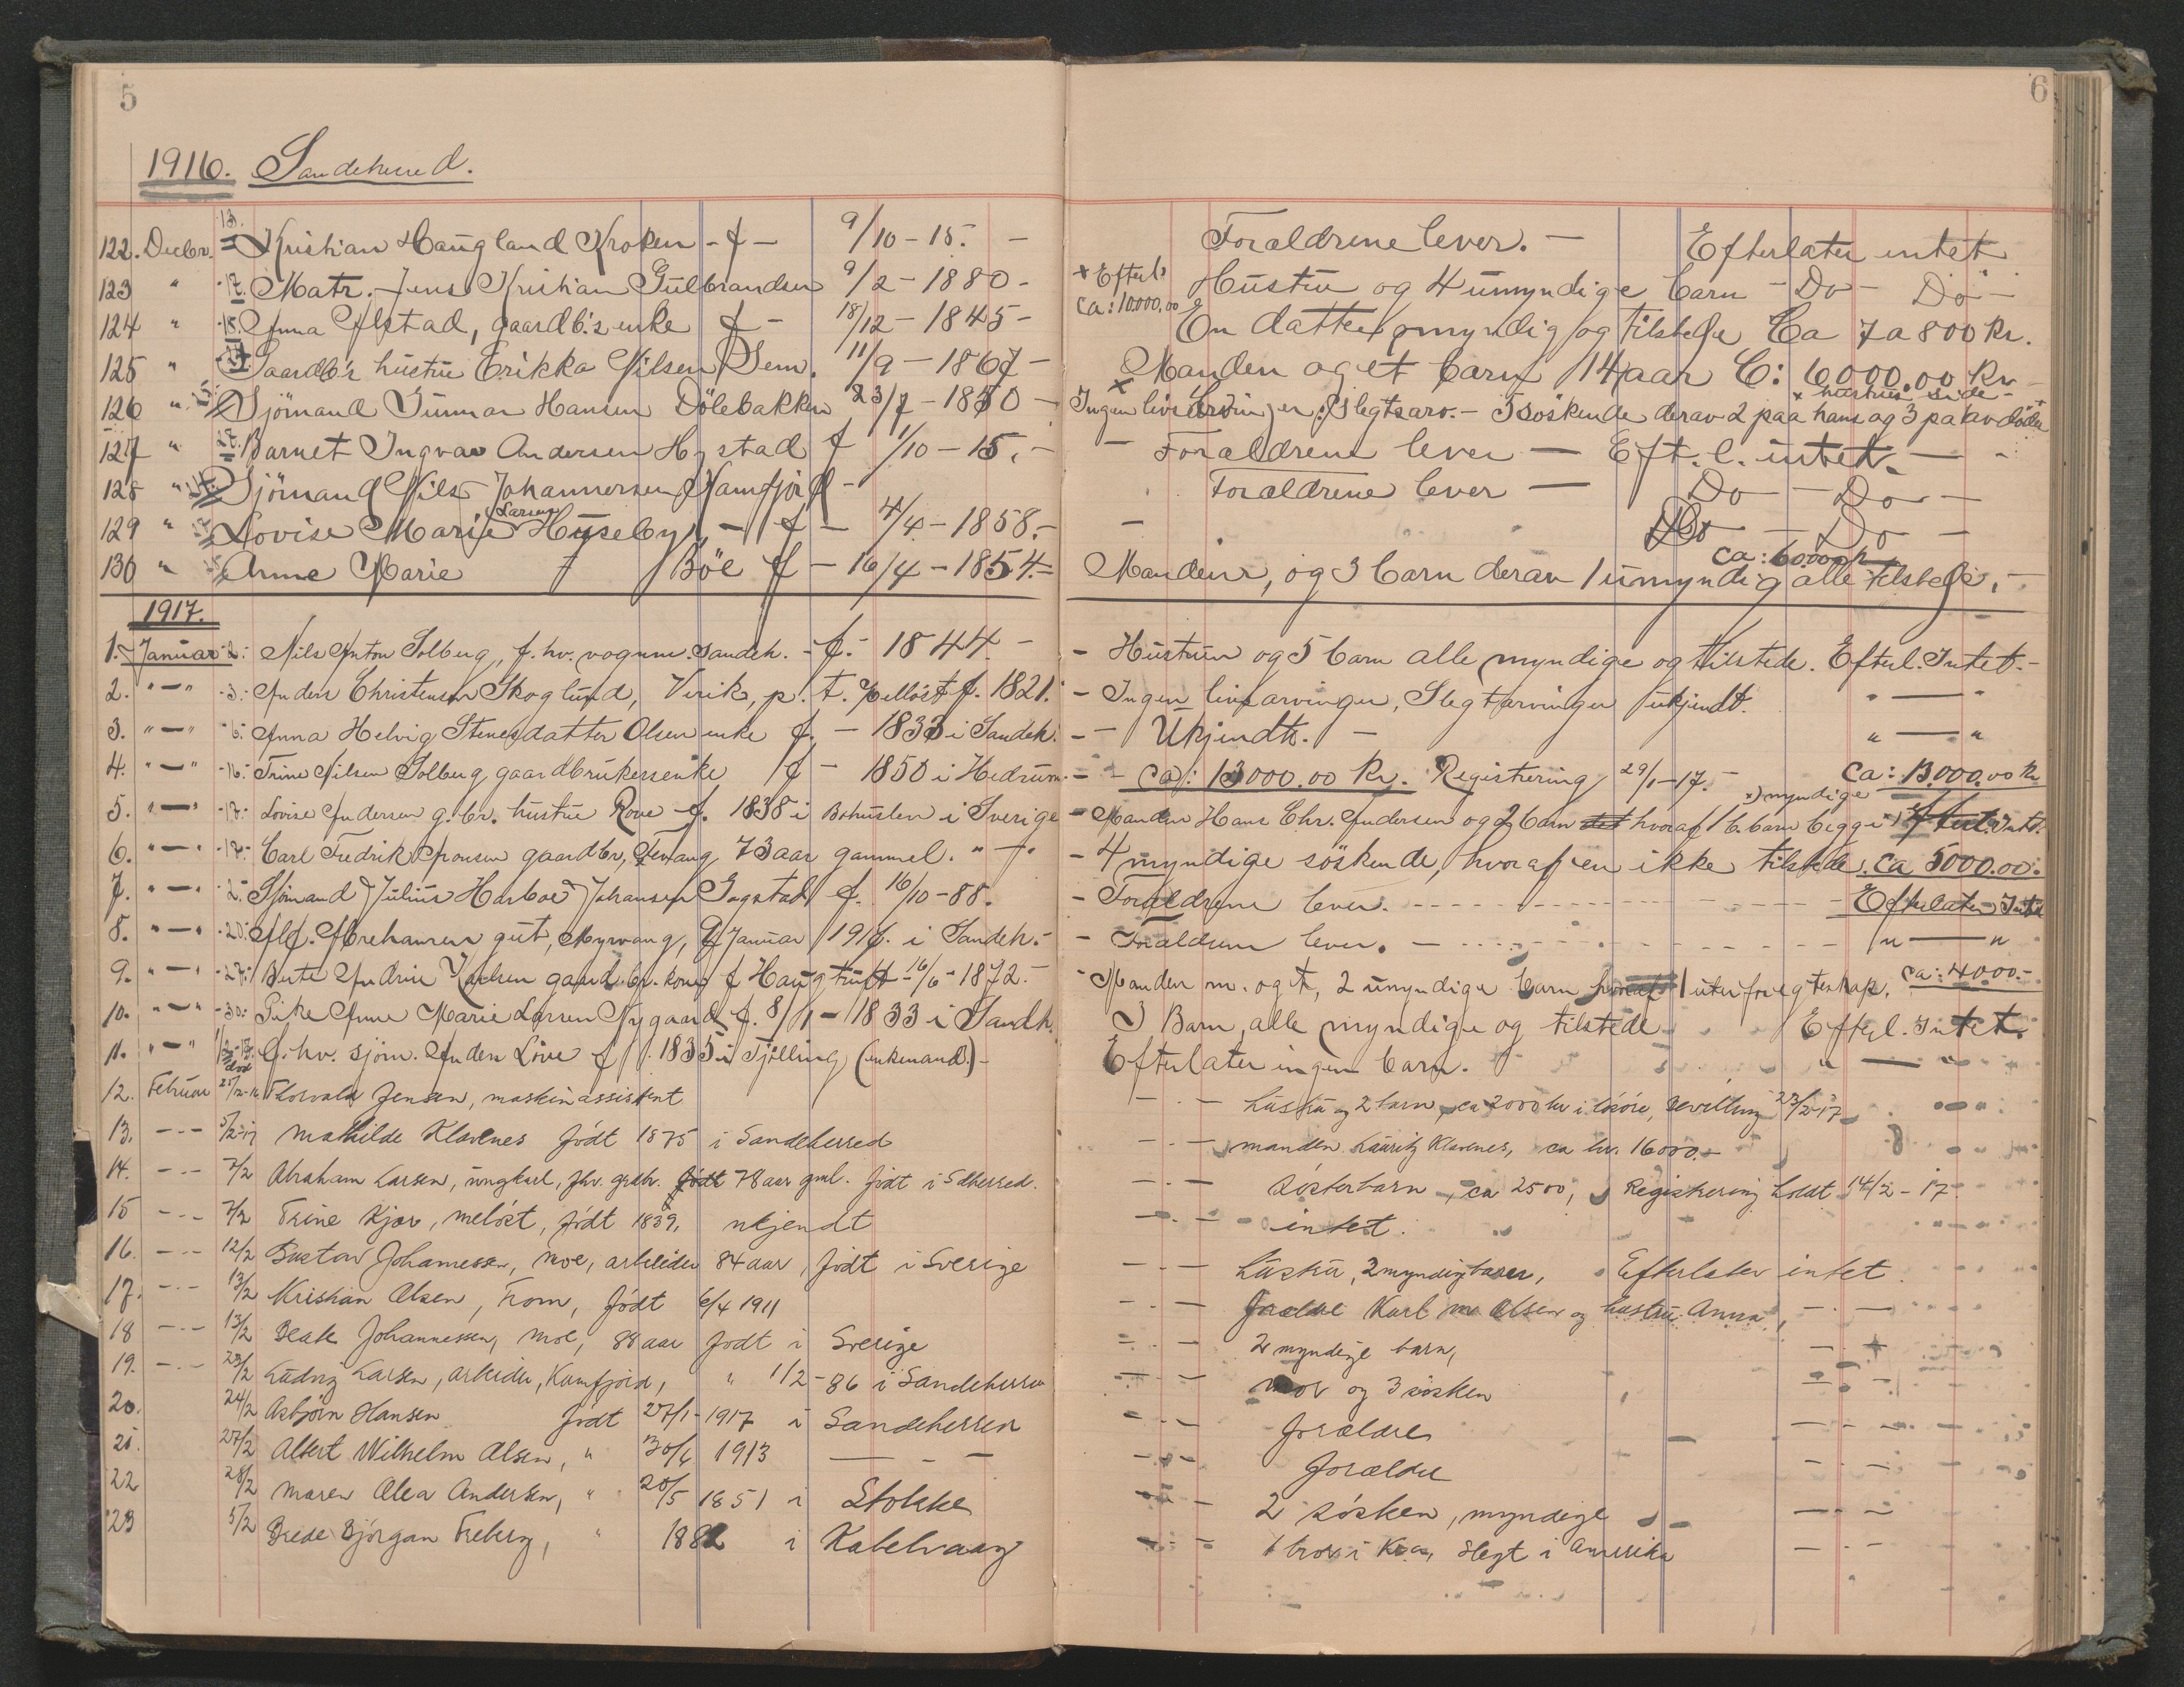 5
6
1916. Sandeherred.
122. Decbr. 13. Kristian Haugland Kroken - f - 9/10-15. - Forældrene lever. - Efterlater intet
123 " 17. Matr. Jens Kristian Gulbrandsen 9/2-1880- Hustru og 4 umyndige barn - Do - Do -
x Efterl. ca: 10000,00
124 " 18. Anna Alstad, gaardb.'s enke f - 18/12-1845- En datter myndig og tilstede Ca 7 a 800 kr.
125 " Gaardb's hustru Erikka Nilsen Sem. 11/9-1867- Manden og et barn 14 aar C: 6000.00 kr -
126 " Sjömand Gunnar Hansen Dölebakken 23/7-1880- Ingen livsarvinger: Slegtsarv. - 5 söskende derav 2 paa hans og 3 paa avdöde
x hustrus side -
127 " 17. Barnet Ingvar Andersen Hystad f 1/10-15. - - Forældrene lever - Eft.l. intet. -
128 " Sjömand Nils Johannersen Kamfjord - Forældrene lever - Do - Do -
129 " Lovise Marie Larsen Huseby - f - 4/4-1858.- - Do - Do -
130 " Anne Marie Böe f - 16/4-1854.- Manden, og 3 barn derav 1 umyndig alle tilstede. -
ca: 6000 kr
1917.
1. Januar 2. Nils Anton Solberg, f. hv. vognm. Sandeh. - f. - 1844. - - Hustruen og 5 barn alle myndige og tilstede. Efterl. Intet. -
2. "—" 3. Anders Christensen Skoglund, Virik, p. t. Melløst f. 1821. - Ingen livsarvinger, Slegtarvinger ukjendt. "—"
3. "—" 6. Anna Helvig Stenesdatter Olsen enke f. - 1833 i Sandeh. - - Ukjendt. - "—"
4. "—" 16. Trine Nilsen Solberg gaardbrukersenke f - 1850 i Hedrum. - - ca: 13000.00 Kr. Registrering 29/1-17. - Ca: 13.000.00 kr
5. "—" 17. Lovise Andersen g. br. hustru Rove - f. 1838 i Bohuslen i Sverige - Manden Hans Chr. Andersen og 2 barn hvoraf 1 b. barn begge x) Efterl. Intt.
x) myndige
6. "—" 17. Carl Fredrik Aronsen gaardbr, Tevang 73 aar gammel. - 4 myndige söskende, hvoraf en ikke tilstede. ca 5000.00.
7. "—" 2. Sjömand Julius Harboe Johansen Gogstad f. 16/10-88. - Forældrene lever. - Efterlater Intet
8. "—" 20. Alf. Abrehamsen gut, Myrvang, 9 Januar 1916. i Sandeh. - - Forældrene lever. - "—"
9. "—" 27. Berte Andrine Karlsen gaard. br. kone f Haugtuft - 16/6-1872. - - Manden m. og t, 2 umyndige barn 1 utenfor egteskap. ca: 4000.-
10. "—" 30. Pike Anne Marie Larsen Nygaard f. 8/1-1833 i Sandh. 3 Barn, alle myndige og tilstede Efterl. Intet.
11. "—" G. hv. sjöm. Anders Löve f 1835 i Tjølling (enkemand.) - Efterlater ingen barn. "—"
12. Februar 25/12-16 Thorvald Jensen, maskinassistent -·- hustru og 2 barn, ca 2000 kr i lösöre, Bevilling 23/2-17
13. -·- 5/2-17 Mathilde Klavenes född 1875 i Sandeherred -·- manden Lauritz Klavenes, ca kr. 16000.-
14. -·- 7/2 Abraham Larsen, ungkarl, fhv. grdbr. 78 aar gml. født i Sdherred. -·- Søsterbarn, ca 2500, Registrering holdt 14/2-17
15 -·- 7/2 Trine Kjær, meløst, født 1839, ukjendt -·- intet.
16. -·- 12/2 Gustav Johannessen, Moe, arbeider 84 aar, født i Sverige -·- hustru, 2 myndig barn, Efterlater intet
17. -·- 13/2 Kristian Olsen, From, født 6/4 1911 -·- Forældre Karl M Olsen og hustru Anna, -·-
18 -·- 13/2 Beate Johannessen, Moe, 88 aar født i Sverige -·- 2 myndige barn,
19. -·- 23/2 Ludvig Larsen, arbeider, Kamfjord, " 1/2-86 i Sandeherred -·- mor og 3 søsken
20. 24/2 Asbjørn Hansen født 27/1-1917 i Sandeherred -·- Forældre
21. 27/2 Albert Wilhelm Olsen, " 30/6 1913 — - - -·- Forældre
22 28/2 Maren Alea Andersen, " 20/5 1851 i Stokke -·- 2 søsken, myndige -·-
23 5/2 Brede Bjørgan Freberg, " 1882 i Kabelvaag -·- 1 bror i Kr.a, slegt i Amerika -·-